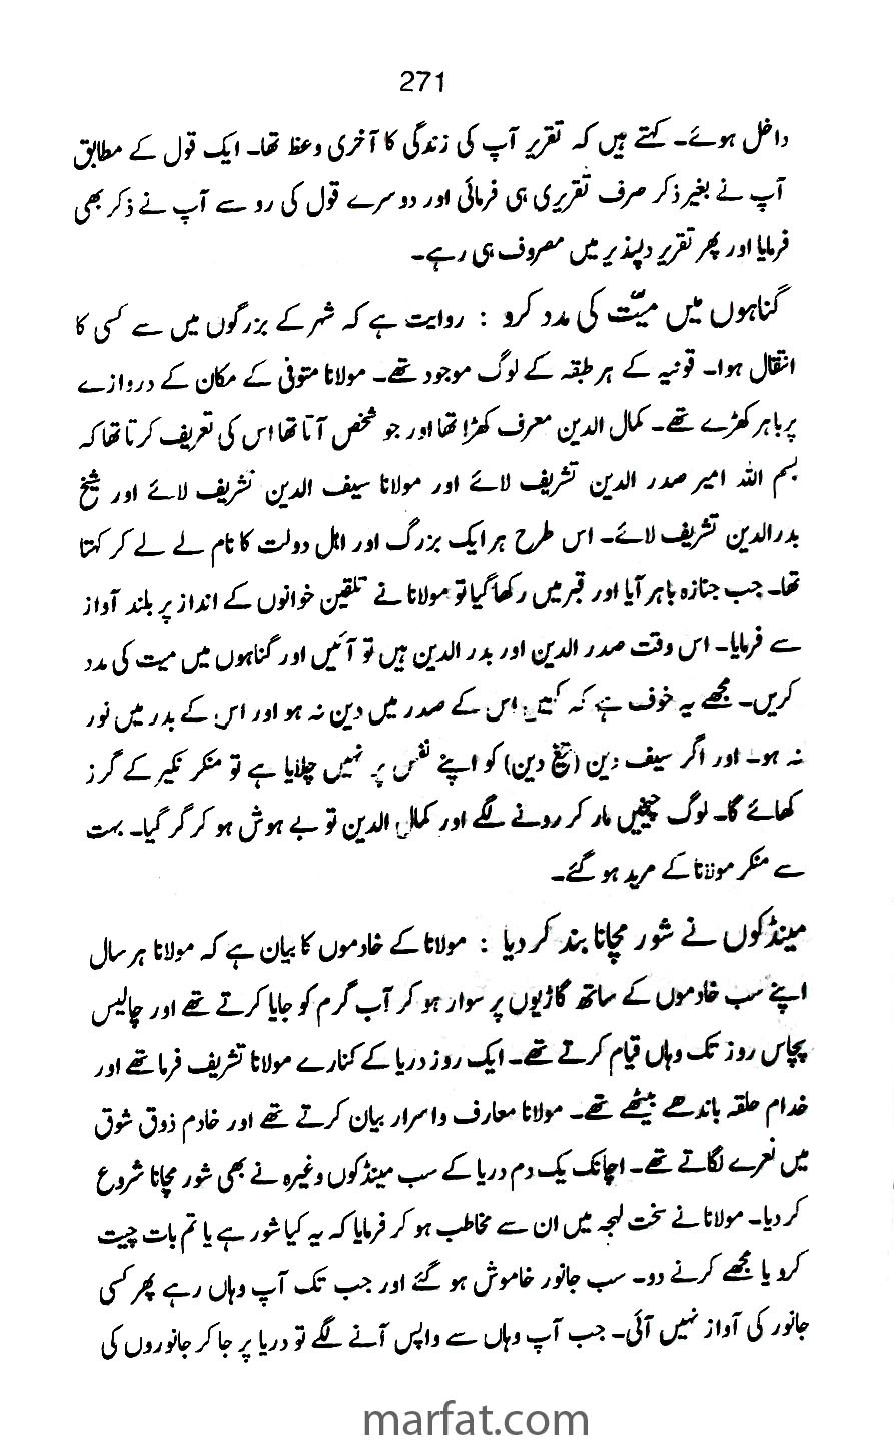 271
داخل ہوئے۔ کہتے ہیں کہ تقریر آپ کی زندگی کا آخری وعظ تھا۔ ایک قول کے مطابق
آپ نے بغیر ذکر صرف تقریری ہی فرمائی اور دوسرے قول کی رو سے آپ نے ذکر بھی
فرمایا اور پھر تقریر دلپذیر میں مصروف ہی رہے۔
گناہوں میں میّت کی مدد کرو : روایت ہے کہ شہر کے بزرگوں میں سے کسی کا
انتقال ہوا۔ قونیہ کے ہر طبقہ کے لوگ موجود تھے۔ مولانا متوفی کے مکان کے دروازے
پر باہر کھڑے تھے۔ کمال الدین معرف کھڑا تھا اور جو شخص آتا تھا اس کی تعریف کرتا تھا کہ
بسم اللہ امیر صدر الدین تشریف لائے اور مولانا سیف الدین تشریف لائے اور شیخ
بدرالدین تشریف لائے۔ اس طرح ہر ایک بزرگ اور اہل دولت کا نام لے لے کر کہتا
تھا۔ جب جنازہ باہر آیا اور قبر میں رکھا گیا تو مولانا نے تلقین خوانوں کے انداز پر بلند آواز
سے فرمایا۔ اس وقت صدر الدین اور بدر الدین ہیں تو آئیں اور گناہوں میں میت کی مدد
کریں۔ مجھے یہ خوف ہے کہ کہیں اس کے صدر میں دین نہ ہو اور اس کے بدر میں نور
نہ ہو۔ اور اگر سیف دین (تیغ دین) کو اپنے نفس پر نہیں چلایا ہے تو منکر نکیر کے گرز
کھائے گا۔ لوگ چیخیں مار کر رونے لگے اور کمال الدین تو بے ہوش ہو کر گر گیا۔ بہت
سے منکر مولانا کے مرید ہو گئے۔
مینڈکوں نے شور مچانا بند کر دیا : مولانا کے خادموں کا بیان ہے کہ مولانا ہر سال
اپنے سب خادموں کے ساتھ گاڑیوں پر سوار ہو کر آب گرم کو جایا کرتے تھے اور چالیس
پچاس روز تک وہاں قیام کرتے تھے۔ ایک روز دریا کے کنارے مولانا تشریف فرما تھے اور
خدام حلقہ باندھے بیٹھے تھے۔ مولانا معارف واسرار بیان کرتے تھے اور خادم ذوق شوق
میں نعرے لگاتے تھے۔ اچانک یک دم دریا کے سب مینڈکوں وغیرہ نے بھی شور مچانا شروع
کر دیا۔ مولانا نے سخت لہجہ میں ان سے مخاطب ہو کر فرمایا کہ یہ کیا شور ہے یا تم بات چیت
کرو یا مجھے کرنے دو۔ سب جانور خاموش ہو گئے اور جب تک آپ وہاں رہے پھر کسی
جانور کی آواز نہیں آئی۔ جب آپ وہاں سے واپس آنے لگے تو دریا پر جا کر جانوروں کی
marfat.com